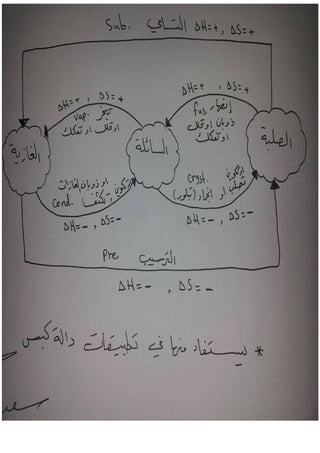 Sub. التسامي ΔH=+ , ΔS=+
ΔH=+ , ΔS=+
تبخر Vap.
او تفكك
ΔH=+ , ΔS=+
إنصهار fus.
ذوبان او
او تفكك
الغازية
السائلة
الصلبة
تكوين او ذوبان الغازات
تكثف Cond.
ΔH=- , ΔS=-
تكوين Cryst.
تصلب او انجماد (تبلور)
ΔH=- , ΔS=-
Pre. الترسيب
ΔH=- , ΔS=-
* يستفاد منها في تطبيقات دالة كبس